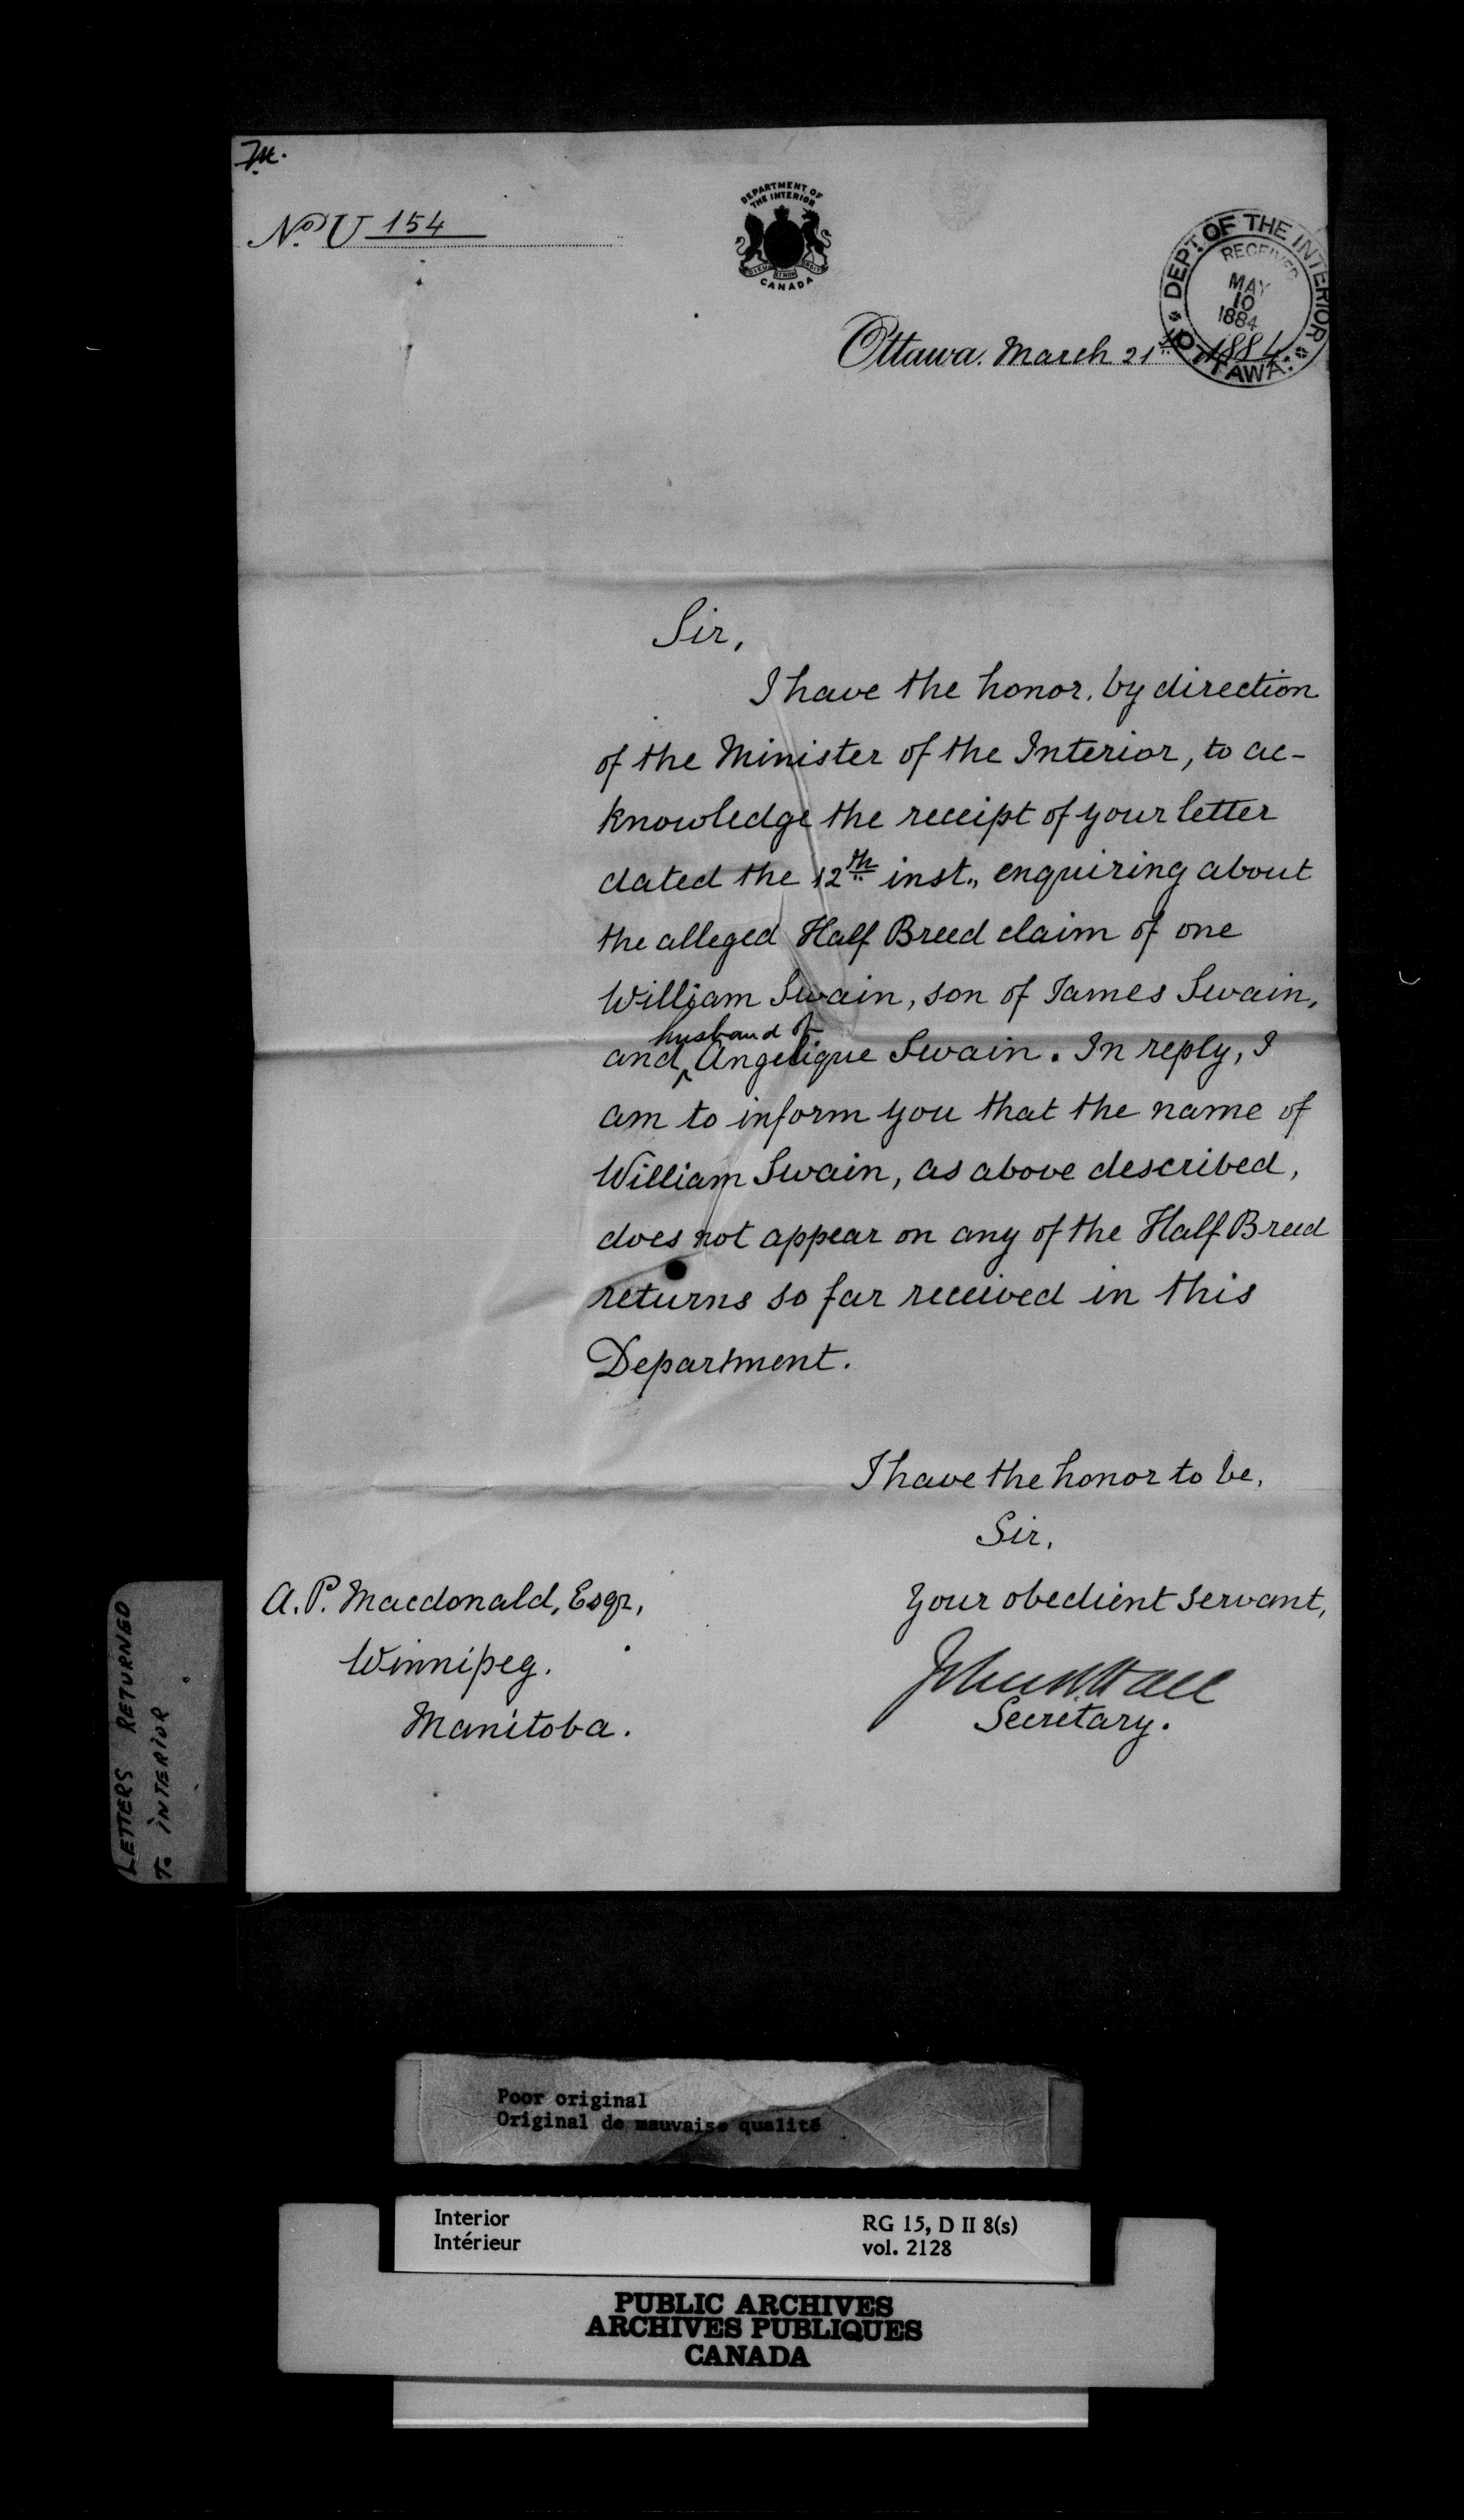 No. U 154
DEPARTMENT OF
THE INTERIOR
DIEU ET MON DROIT
CANADA
DEPT. OF THE INTERIOR
RECEIVED
MAY
10
1884
OTTAWA.
Ottawa. March 21st 1884
Sir,
I have the honor, by direction
of the Minister of the Interior, to ac-
knowledge the receipt of your letter
dated the 12th inst., enquiring about
the alleged Half Breed claim of one
William Swain, son of James Swain,
husband of
and ‸ Angelique Swain. In reply, I
am to inform you that the name of
William Swain, as above described,
does not appear on any of the Half Breed
returns so far received in this
Department.
I have the honor to be,
Sir,
Your obedient servant,
John R. Hall
Secretary.
A. P. Macdonald, Esqr,
Winnipeg.
Manitoba.
LETTERS RETURNED
To INTERIOR
Poor original
Original de mauvaise qualité
Interior
Intérieur
RG 15, D II 8(s)
vol. 2128
PUBLIC ARCHIVES
ARCHIVES PUBLIQUES
CANADA